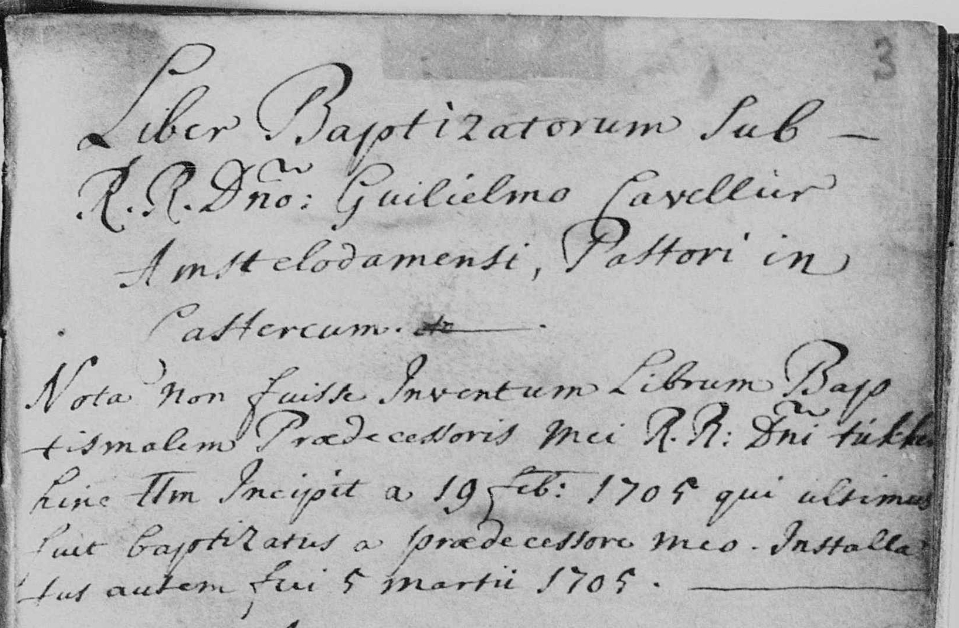 3
Liber Baptizatorum Sub —
R. R. Dño: Guilielmo Cavellier
Amstelodamensi, Pastori in
Castercum. etc
Nota non fuisse Inventum Librum Bap
tismalem Prædecessoris mei R. R: Dñi
hinc Incipit a 19 feb: 1705 qui ultimus
fuit baptizatus a prædecessore meo. Installa
tus autem fui 5 martii 1705.